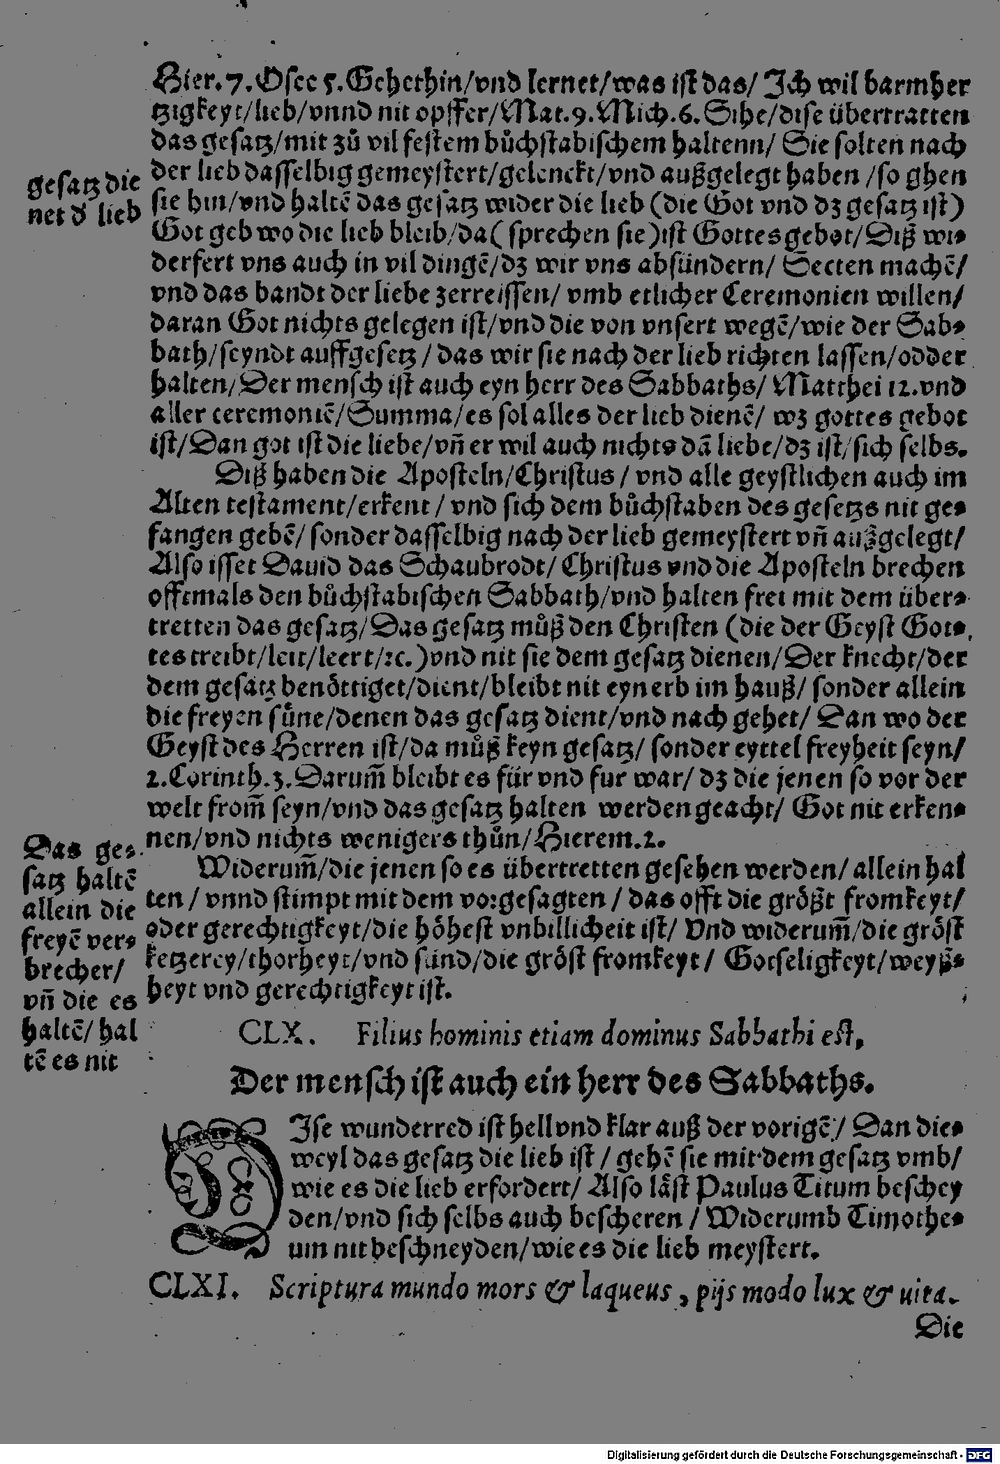 Hier.7.Osee 5.Gehethin/vnd lernet/was ist das/ Ich wil barmher
tzigkeyt/lieb/vnnd nit opffer/Mat.9.Mich.6.Sihe/dise übertratten
das gesatz/mit zů vil festem bůchstabischem haltenn/ Sie solten nach
der lieb dasselbig gemeystert/gelenckt/vnd außgelegt haben /so ghen
sie hin/vnd haltē das gesatz wider die lieb (die Got vnd dz gesatz ist)
Got geb wo die lieb bleib/da( sprechen sie)ist Gottes gebot/Diß wi⸗
derfert vns auch in vil dingē/dz wir vns absündern/ Secten machē/
vnd das bandt der liebe zerreissen/ vmb etlicher Ceremonien willen/
daran Got nichts gelegen ist/vnd die von vnsert wegē/wie der Sab⸗
bath/seyndt auffgesetz /das wir sie nach der lieb richten lassen/odder
halten/Der mensch ist auch eyn herr des Sabbaths/ Matthei 12.vnd
aller ceremoniē/Summa/es sol alles der lieb dienē/ wz gottes gebot
ist/Dan got ist die liebe/vñ er wil auch nichts dā liebe/dz ist/sich selbs.
gesatz die
net d' lieb
Diß haben die Aposteln/Christus / vnd alle geystlichen auch im
Alten testament/erkent / vnd sich dem bůchstaben des gesetzs nit ge⸗
fangen gebē/ sonder dasselbig nach der lieb gemeystert vñ außgelegt/
Also isset Dauid das Schaubrodt/ Christus vnd die Aposteln brechen
offtmals den bůchstabischen Sabbath/vnd halten frei mit dem über⸗
tretten das gesatz/Das gesatz můß den Christen (die der Geyst Got⸗
tes treibt/leit/leert/ꝛc.)vnd nit sie dem gesatz dienen/Der knecht/der
dem gesatz benöttiget/dient/bleibt nit eyn erb im hauß/ sonder allein
die freyen süne/denen das gesatz dient/vnd nach gehet/ Dan wo der
Geyst des Herren ist/da můß keyn gesatz/ sonder eyttel freyheit seyn/
2.Corinth.3.Darum̄ bleibt es für vnd fur war/ dz die jenen so vor der
welt from̄ seyn/vnd das gesatz halten werden geacht/ Got nit erken⸗
nen/vnd nichts wenigers thůn/Hierem.2.
Widerum̄/die jenen so es übertretten gesehen werden/ allein hal
ten / vnnd stimpt mit dem vorgesagten / das offt die größt fromkeyt/
oder gerechtigkeyt/die höhest vnbillicheit ist/ Vnd widerum̄/die gröst
ketzerey/thorheyt/vnd sünd/die gröst fromkeyt/ Gotseligkeyt/weyß⸗
heyt vnd gerechtigkeyt ist.
Das ge⸗
satz haltē
allein die
freyē ver⸗
brecher/
vñ die es
haltē/ hal
tē es nit
CLX. Filius hominis etiam dominus Sabbathi est,
Der mensch ist auch ein herr des Sabbaths.
DIse wunderred ist hell vnd klar auß der vorigē/ Dan die⸗
weyl das gesatz die lieb ist / gehē sie mit dem gesatz vmb/
wie es die lieb erfordert/ Also läst Paulus Titum beschey
den/vnd sich selbs auch bescheren / Widerumb Timothe⸗
um nit beschneyden/wie es die lieb meystert.
CLXI. Scriptura mundo mors & laqueus, pijs modo lux & uita.
Die
Digitalisierung gefördert durch die Deutsche Forschungsgemeinschaft - DFG